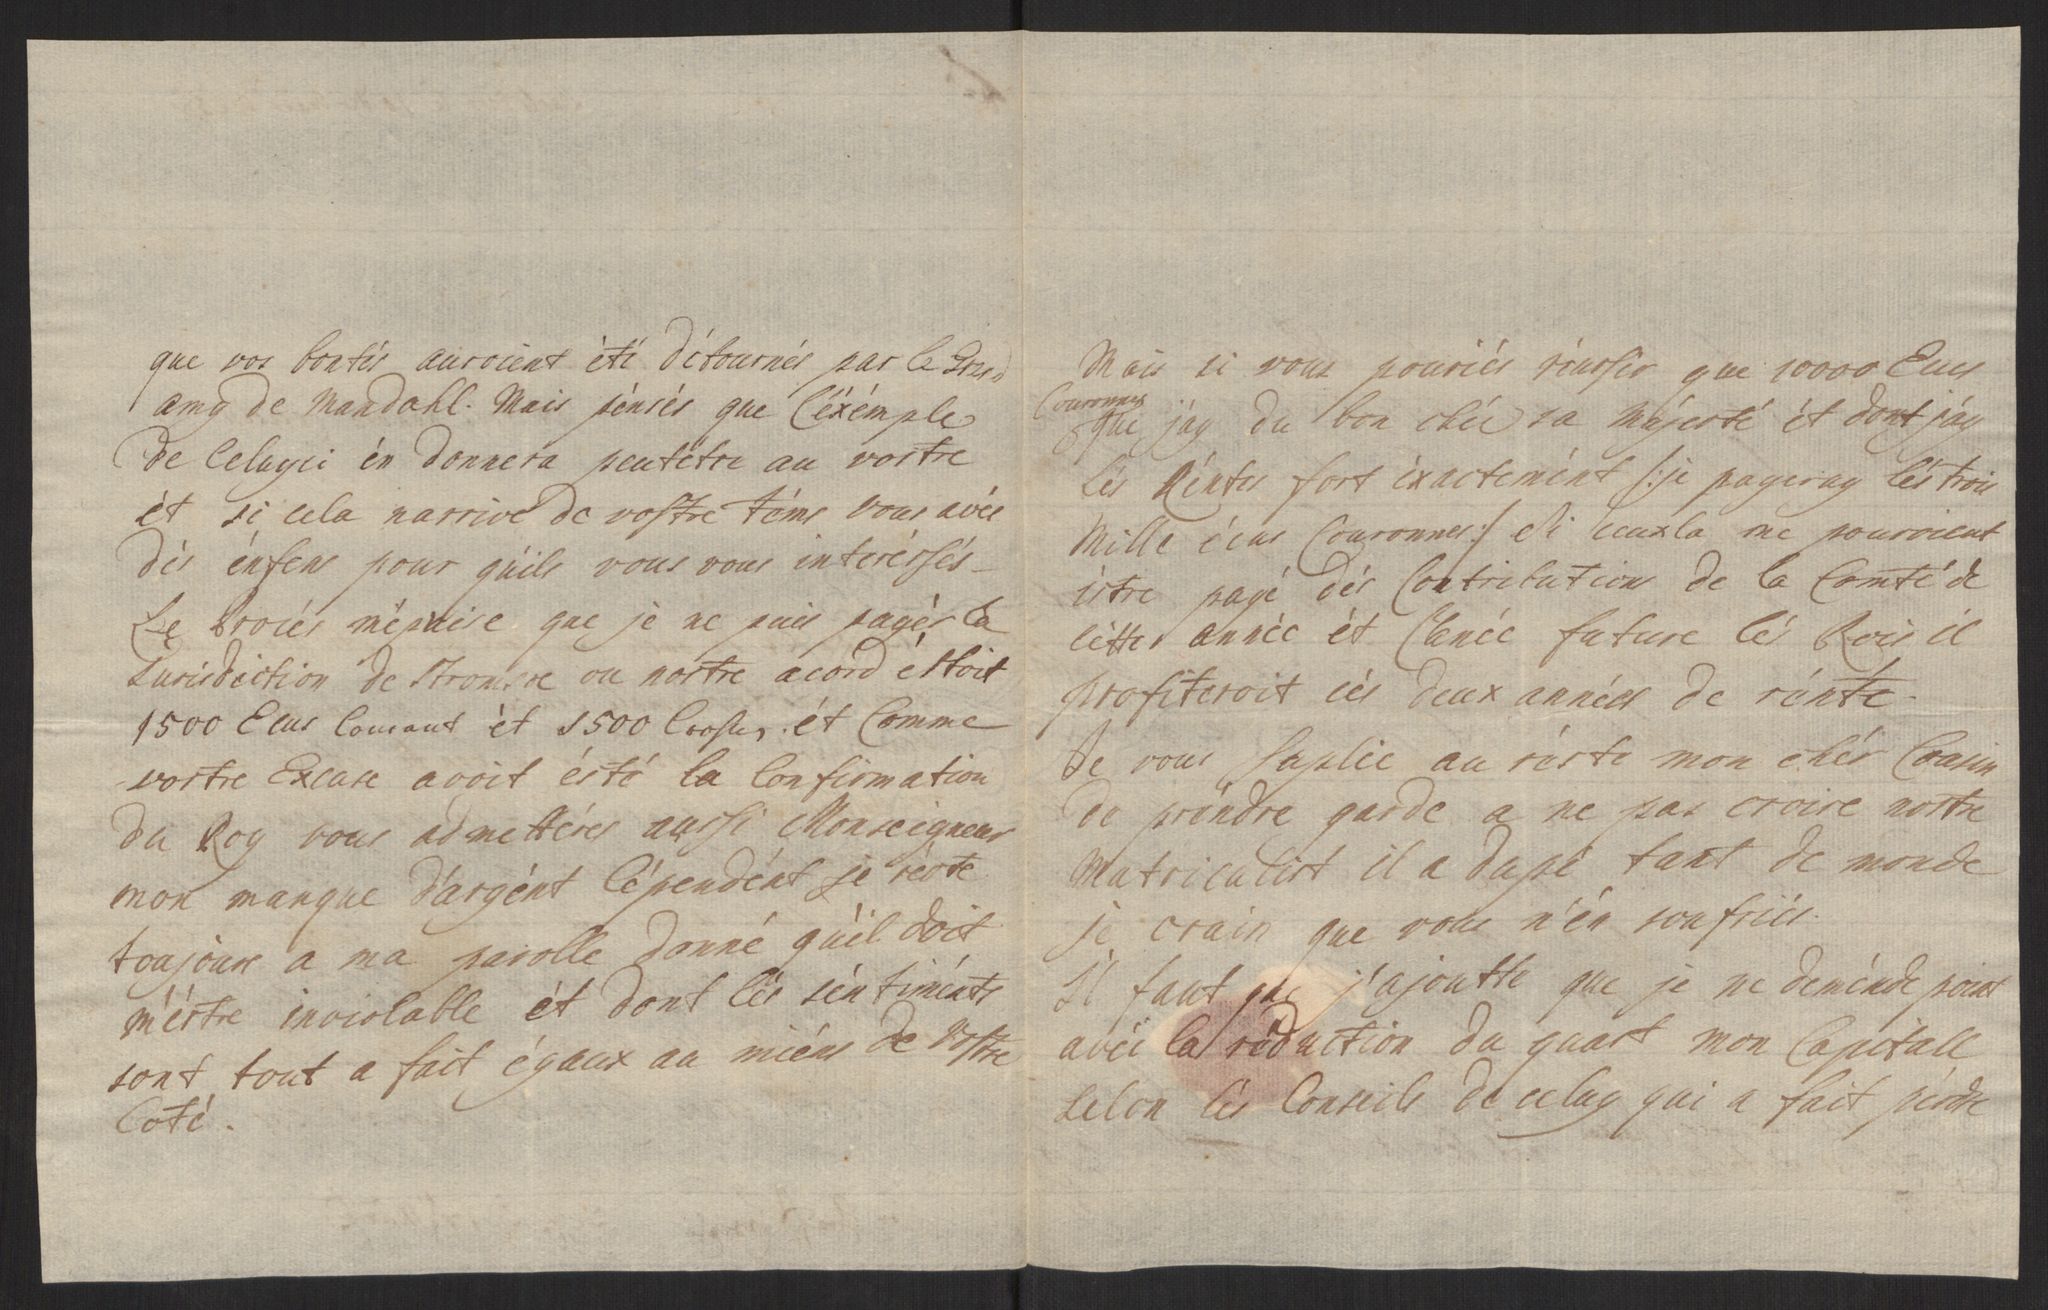 que vos bontés auroient èté détournés par le Grand
amy de Mandahl. Mais pénsés que l'éxémple
de Celuyci én donnera peutétre au vostre
ét si cela narrive de vostre téms vous avés
dés énfens pour qúils vous vous interéssés
Le Procés m'épuise que je ne puis payér la
Jurisdiction de Stromsøe ou nostre acord éstoit
1500 Ecus Courant ét 1500 ét Comme
vostre Excuse avoit ésté la Confirmation
du Roy vous admettérés aussi Monseigneur
mon manque d'argént Cépendént je réste
toujours a ma parolle donné qúil doit
m'éstre inviolable ét dont lés séntiménts
sont tout a fait égaux au miéns de Vostre
Coté.
Mais si vous pouriés réussir que 10000 Ecus
Couronnes
que j'ay du bon chéz sa Majesté ét dont j'ay
lés Réntes fort éxactemént /: je payeray lés trois
Mille écus Couronnes :/ Si ceuxla me pouroient
éstre payé dés Contributions de la Comté de
cètte année ét l'anée future lés Rois il
profiteroit cés deux années de rénte.
Je vous suplie au réste mon chér Cousin
de préndre garde a ne pas croire nostre
Matriculist il a dupé tant de monde
je crain que vous n'én soufriés.
Il faut que j'ajoutte que je ne deménde point
avéc la réduction du quart mon Capitall
selon lés Conseils de celuy qui a fait pérdre